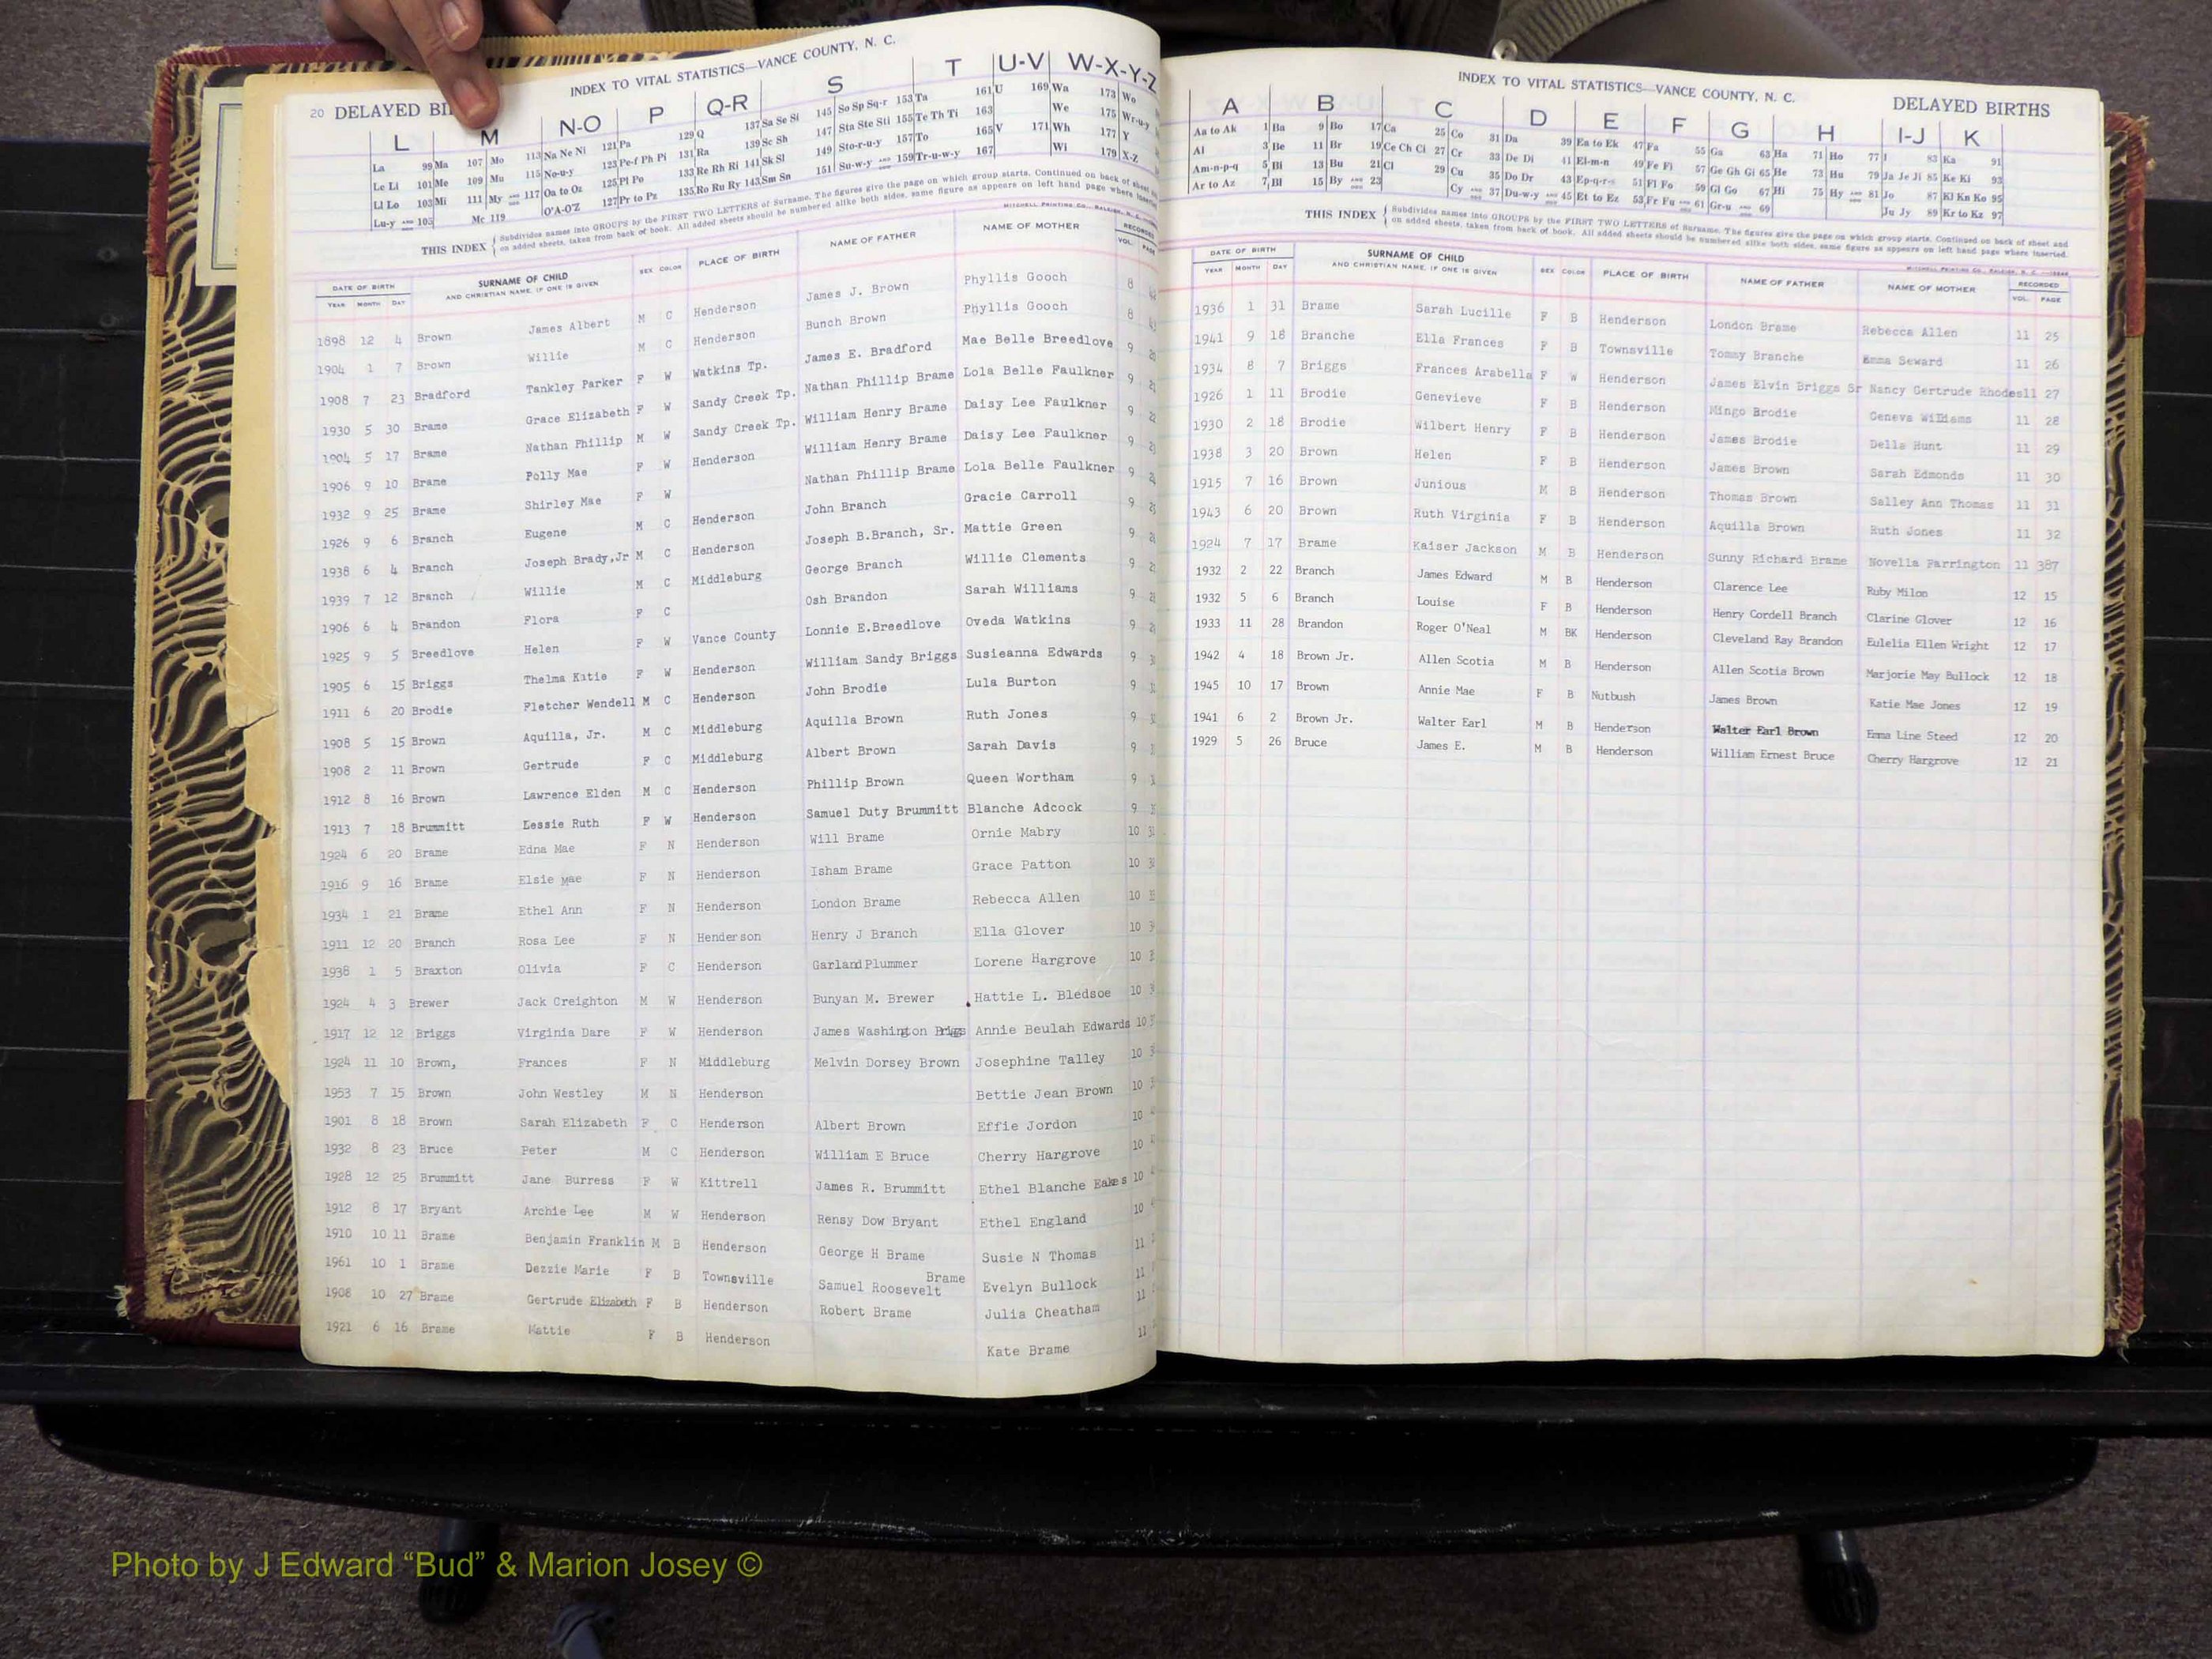 20 DELAYED BI
INDEX TO VITAL STATISTICS—VANCE COUNTY, N. C.
L M N-O P Q-R S T U-V W-X-Y-Z
La 99 Ma 107 Mo 113 Na Ne Ni 121 Pa 129 Q 137 Sa Se Si 145 So Sp Sq-r 153 Ta 161 U 169 Wa 173 Wo
Le Li 101 Me 109 Mu 115 No-u-y 123 Pe-f Ph Pi 131 Ra 139 Sc Sh 147 Sta Ste Sti 155 Te Th Ti 163 We 175 Wr-u-y
Ll Lo 103 Mi 111 My 117 Oa to Oz 125 Pl Po 133 Re Rh Ri 141 Sk Sl 149 Sto-r-u-y 157 To 165 V 171 Wh 177 Y
Lu-y 103 Mc 119 O'A-O'Z 127 Pr to Pz 135 Ro Ru Ry 143 Sm Sn 151 Su-w-y 159 Tr-u-w-y 167 Wi 179 X-Z
THIS INDEX { Subdivides names into GROUPS by the FIRST TWO LETTERS of Surname. The figures give the page on which group starts. Continued on back of sheet
on added sheets, taken from back of book. All added sheets should be numbered alike both sides, same figure as appears on left hand page where inserted
DATE OF BIRTH SURNAME OF CHILD SEX COLOR PLACE OF BIRTH NAME OF FATHER NAME OF MOTHER RECORDED
YEAR MONTH DAY AND CHRISTIAN NAME, IF ONE IS GIVEN VOL. PAGE
1898 12 4 Brown James Albert M C Henderson James J. Brown Phyllis Gooch 8
1904 1 7 Brown Willie M C Henderson Bunch Brown Phyllis Gooch 8
1908 7 23 Bradford Tankley Parker F W Watkins Tp. James E. Bradford Mae Belle Breedlove 9
1930 5 30 Brame Grace Elizabeth F W Sandy Creek Tp. Nathan Phillip Brame Lola Belle Faulkner 9
1904 5 17 Brame Nathan Phillip M W Sandy Creek Tp. William Henry Brame Daisy Lee Faulkner 9
1906 9 10 Brame Polly Mae F W Henderson William Henry Brame Daisy Lee Faulkner 9
1932 9 25 Brame Shirley Mae F W Nathan Phillip Brame Lola Belle Faulkner 9
1926 9 6 Branch Eugene M C Henderson John Branch Gracie Carroll 9
1938 6 4 Branch Joseph Brady,Jr M C Henderson Joseph B.Branch, Sr. Mattie Green 9
1939 7 12 Branch Willie M C Middleburg George Branch Willie Clements 9
1906 6 4 Brandon Flora F C Osh Brandon Sarah Williams 9
1925 9 5 Breedlove Helen F W Vance County Lonnie E.Breedlove Oveda Watkins 9
1905 6 15 Briggs Thelma Katie F W Henderson William Sandy Briggs Susieanna Edwards 9
1911 6 20 Brodie Fletcher Wendell M C Henderson John Brodie Lula Burton 9
1908 5 15 Brown Aquilla, Jr. M C Middleburg Aquilla Brown Ruth Jones 9
1908 2 11 Brown Gertrude F C Middleburg Albert Brown Sarah Davis 9
1912 8 16 Brown Lawrence Elden M C Henderson Phillip Brown Queen Wortham 9
1913 7 18 Brummitt Lessie Ruth F W Henderson Samuel Duty Brummitt Blanche Adcock 9
1924 6 20 Brame Edna Mae F N Henderson Will Brame Ornie Mabry 10
1916 9 16 Brame Elsie Mae F N Henderson Isham Brame Grace Patton 10
1934 1 21 Brame Ethel Ann F N Henderson London Brame Rebecca Allen 10
1911 12 20 Branch Rosa Lee F N Henderson Henry J Branch Ella Glover 10
1938 1 5 Braxton Olivia F C Henderson Garland Plummer Lorene Hargrove 10
1924 4 3 Brewer Jack Creighton M W Henderson Bunyan M. Brewer Hattie L. Bledsoe 10
1917 12 12 Briggs Virginia Dare F W Henderson James Washington Briggs Annie Beulah Edwards 10
1924 11 10 Brown, Frances F N Middleburg Melvin Dorsey Brown Josephine Talley 10
1953 7 15 Brown John Westley M N Henderson Bettie Jean Brown 10
1901 8 18 Brown Sarah Elizabeth F C Henderson Albert Brown Effie Jordon 10
1932 8 23 Bruce Peter M C Henderson William E Bruce Cherry Hargrove 10
1928 12 25 Brummitt Jane Burress F W Kittrell James R. Brummitt Ethel Blanche Eakes 10
1912 8 17 Bryant Archie Lee M W Henderson Rensy Dow Bryant Ethel England 10
1910 10 11 Brame Benjamin Franklin M B Henderson George H Brame Susie N Thomas 11
1961 10 1 Brame Dezzie Marie F B Townsville Samuel Roosevelt Brame Evelyn Bullock 11
1908 10 27 Brame Gertrude Elizabeth F B Henderson Robert Brame Julia Cheatham 11
1921 6 16 Brame Mattie F B Henderson Kate Brame 11
INDEX TO VITAL STATISTICS—VANCE COUNTY, N. C. DELAYED BIRTHS
A B C D E F G H I-J K
Aa to Ak 1 Ba 9 Bo 17 Ca 25 Co 31 Da 39 Ea to Ek 47 Fa 55 Ga 63 Ha 71 Ho 77 I 83 Ka 91
Al 3 Be 11 Br 19 Ce Ch Ci 27 Cr 33 De Di 41 El-m-n 49 Fe Fi 57 Ge Gh Gi 65 He 73 Hu 79 Ja Je Ji 85 Ke Ki 93
Am-n-p-q 5 Bi 13 Bu 21 Cl 29 Cu 35 Do Dr 43 Ep-q-r-s 51 Fl Fo 59 Gl Go 67 Hi 75 Hy 81 Jo 87 Kl Kn Ko 95
Ar to Az 7 Bl 15 By 23 Cy 37 Du-w-y 45 Et to Ez 53 Fr Fu 61 Gr-u 69 Ju Jy 89 Kr to Kz 97
THIS INDEX { Subdivides names into GROUPS by the FIRST TWO LETTERS of Surname. The figures give the page on which group starts. Continued on back of sheet and
on added sheets, taken from back of book. All added sheets should be numbered alike both sides, same figure as appears on left hand page where inserted.
DATE OF BIRTH SURNAME OF CHILD SEX COLOR PLACE OF BIRTH NAME OF FATHER NAME OF MOTHER RECORDED
YEAR MONTH DAY AND CHRISTIAN NAME, IF ONE IS GIVEN VOL. PAGE
1936 1 31 Brame Sarah Lucille F B Henderson London Brame Rebecca Allen 11 25
1941 9 18 Branche Ella Frances F B Townsville Tommy Branche Emma Seward 11 26
1934 8 7 Briggs Frances Arabella F W Henderson James Elvin Briggs Sr Nancy Gertrude Rhodes11 27
1926 1 11 Brodie Genevieve F B Henderson Mingo Brodie Geneva Williams 11 28
1930 2 18 Brodie Wilbert Henry F B Henderson James Brodie Della Hunt 11 29
1938 3 20 Brown Helen F B Henderson James Brown Sarah Edmonds 11 30
1915 7 16 Brown Junious M B Henderson Thomas Brown Salley Ann Thomas 11 31
1943 6 20 Brown Ruth Virginia F B Henderson Aquilla Brown Ruth Jones 11 32
1924 7 17 Brame Kaiser Jackson M B Henderson Sunny Richard Brame Novella Parrington 11 387
1932 2 22 Branch James Edward M B Henderson Clarence Lee Ruby Milon 12 15
1932 5 6 Branch Louise F B Henderson Henry Cordell Branch Clarine Glover 12 16
1933 11 28 Brandon Roger O'Neal M BK Henderson Cleveland Ray Brandon Eulelia Ellen Wright 12 17
1942 4 18 Brown Jr. Allen Scotia M B Henderson Allen Scotia Brown Marjorie May Bullock 12 18
1945 10 17 Brown Annie Mae F B Nutbush James Brown Katie Mae Jones 12 19
1941 6 2 Brown Jr. Walter Earl M B Henderson Walter Earl Brown Emma Line Steed 12 20
1929 5 26 Bruce James E. M B Henderson William Ernest Bruce Cherry Hargrove 12 21
Photo by J Edward “Bud” & Marion Josey ©